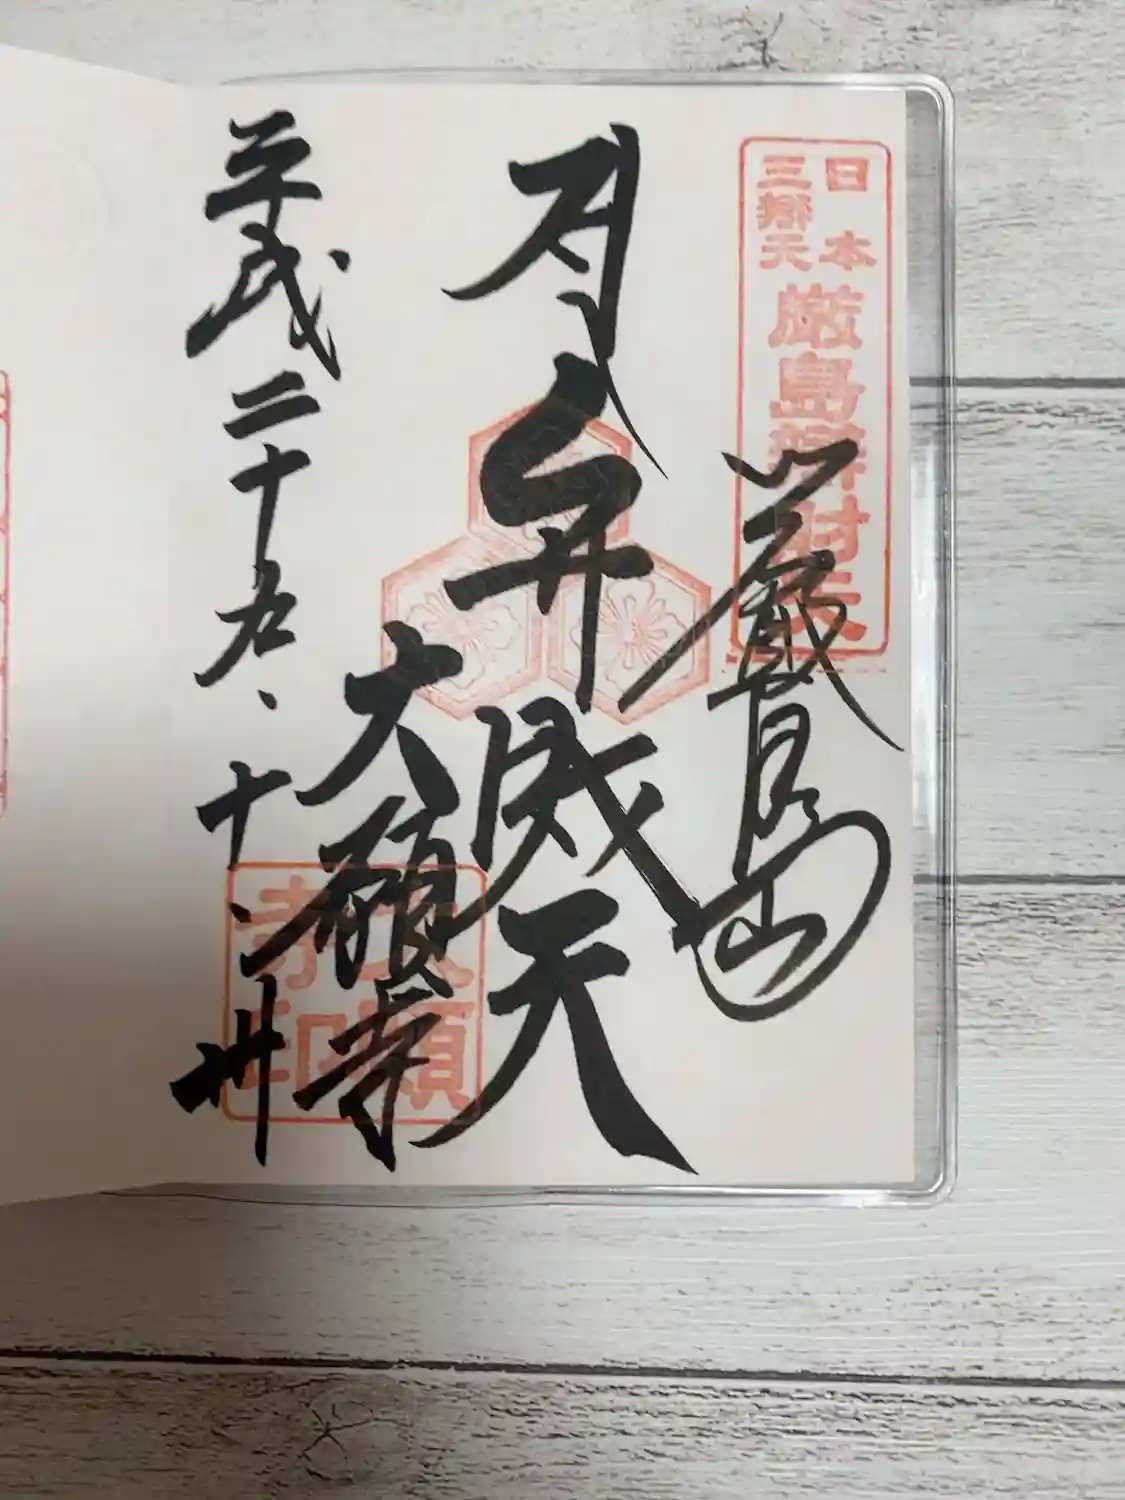 日本
三辨天
厳島辨財天
厳島山
弁財天
大願寺
平成二十九、十、卅
大願
寺印